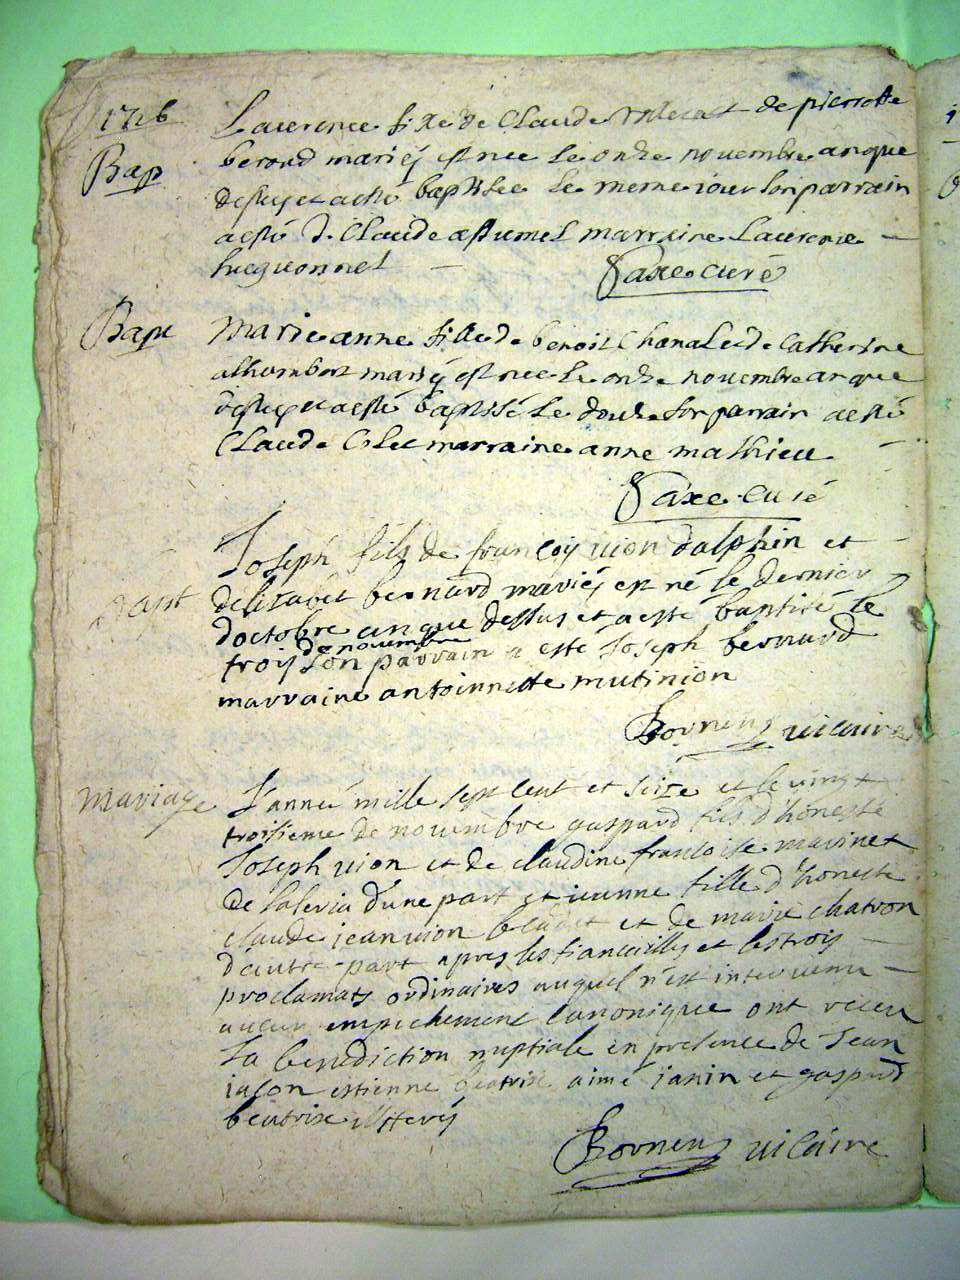 1716
Bap
Laurence fille de Claude et de pierrotte
beroud mariéș est nee le onze novembre an que
dessus et a esté baptisée le meme iour son parrain
a esté Claude marraine Laurence
huguonnet
Saxe curé
Bapt
Marie anne fille de benoit et de Catherine
alhumbert mariéș est nee le onze novembre an que
dessus et a esté baptisé le douze son parrain a esté
Claude marraine anne mathieu
Saxe curé
bapt
Joseph fils de françoiș uion dalphin et
delizabet bernard mariéș est né le dernier
doctobre an que dessus et a esté baptisé le
de novembre
troiș son parrain a esté Joseph bernard
marraine antoinnette mutinion
Borneng vicaire
Mariage
L'anneé mille sept cent et seize et le vingt
troisieme de nouembre gaspard fils d'honeste
Joseph uion et de claudine francoise marinet
de d'une part et ieanne fille d'honeste
claude jean uion et de marie chatron
d'autre part apres les fiancailles et les trois
proclamats ordinaires auquel n'est interuenu
aucun empechement canonique ont receu
la benediction nuptiale en presence de Jean
iason estienne beatrix aime janin et gaspard
beatrix
Borneng vicaire